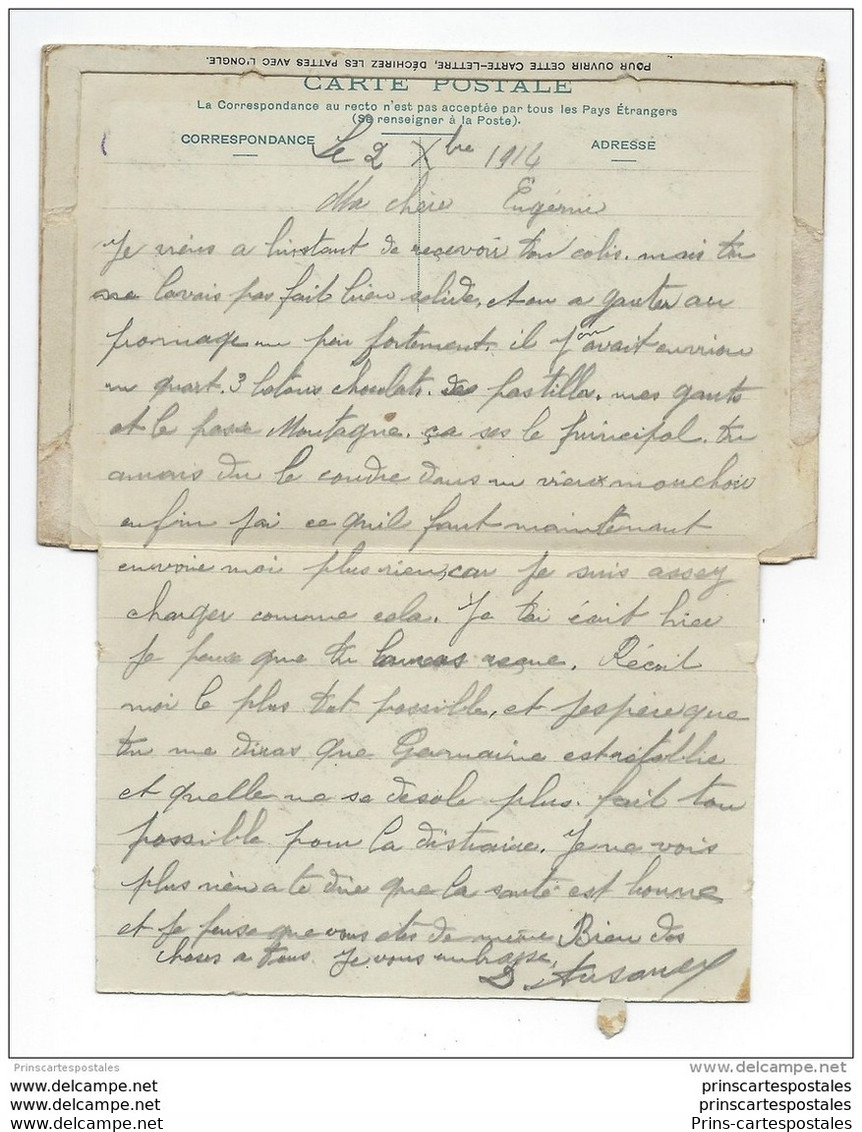 POUR OUVRIR CETTE CARTE-LETTRE, DÉCHIREZ LES PATTES AVEC L'ONGLE.
CARTE POSTALE
La Correspondance au recto n'est pas acceptée par tous les Pays Étrangers
(Se renseigner à la Poste).
CORRESPONDANCE ADRESSE
Le 2 Xbre 1914
Ma chère Eugénie
Je viens a linstant de recevoir ton colis. mais tu
ne lavais pas fait bien solide, et on a gouter au
fromage un peu fortement. il y en avait environ
un quart. 3 batons chocolats. des pastilles. mes gants
et le passe Montagne. ça ses le principal. tu
aurais du le coudre dans un vieux mouchoir
enfin jai ce quil faut maintenant
envoie moi plus rien, car je suis assez
charger comme cela. Je tai écrit hier
je pense que tu lauras recue. Récrit
moi le plus tot possible, et jespère que
tu me diras que Germaine est rétablie
et quelle ne se desole plus. fait ton
possible pour la distraire. Je ne vois
plus rien a te dire que la santé est bonne
et je pense que vous etes de meme Bien des
choses a tous. Je vous embrasse.
Prinscartespostales
www.delcampe.net
prinscartespostales
prinscartespostales
prinscartespostales
prinscartespostales
prinscartespostales
Prins-cartespostales